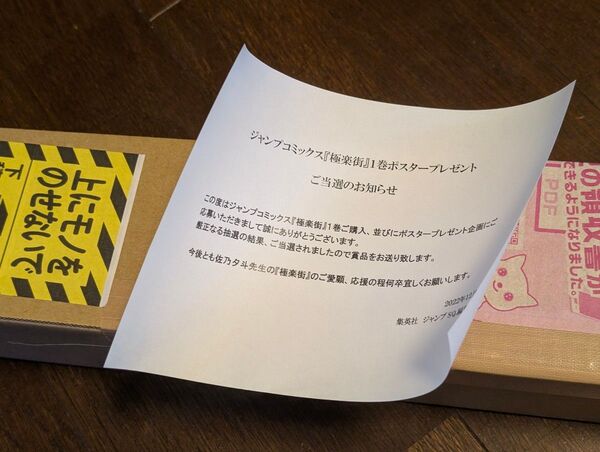 ジャンプコミックス『極楽街』1巻ポスタープレゼント
ご当選のお知らせ
この度はジャンプコミックス『極楽街』1巻ご購入、並びにポスタープレゼント企画にご
応募いただきまして誠にありがとうございます。
厳正なる抽選の結果、ご当選されましたので賞品をお送り致します。
今後とも佐乃夕斗先生の『極楽街』のご愛顧、応援の程何卒宜しくお願いします。
2022年12
集英社 ジャンプSQ.編
上にモノを
のせないで
下
の領収書が
できるようになりました。
PDF